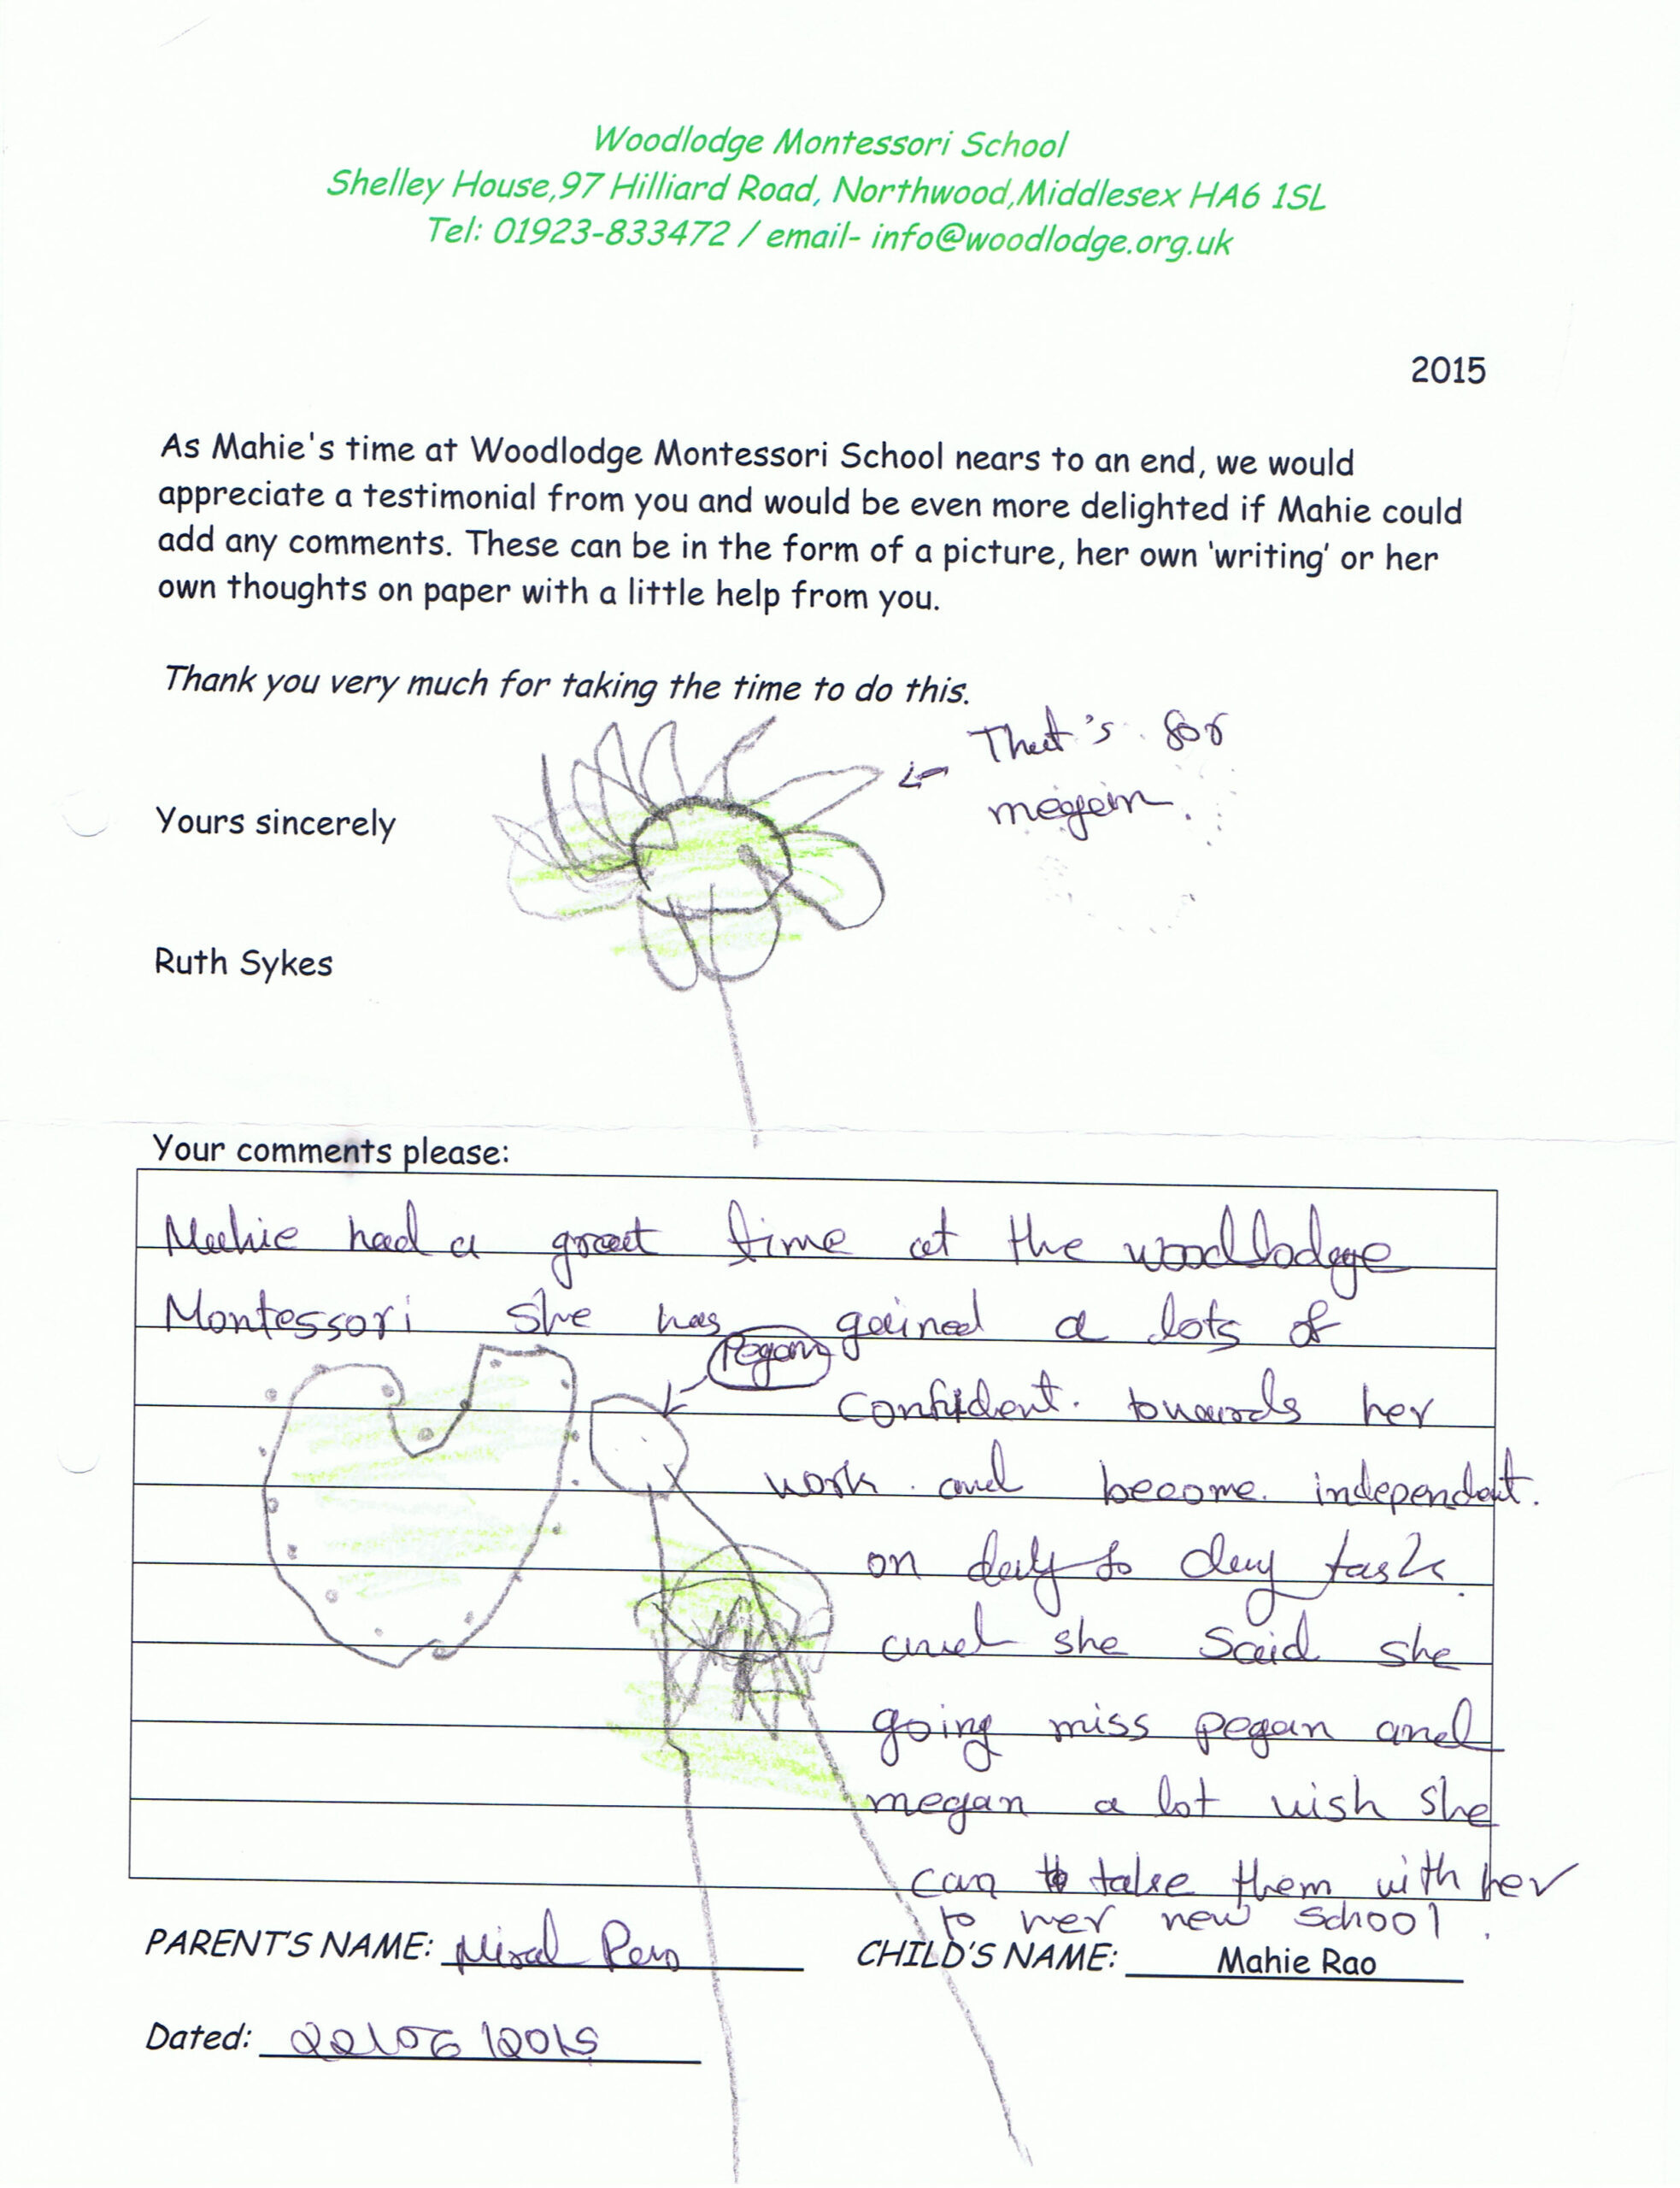 Woodlodge Montessori School
Shelley House,97 Hilliard Road, Northwood,Middlesex HA6 1SL
Tel: 01923-833472 / email- info@woodlodge.org.uk
2015
As Mahie's time at Woodlodge Montessori School nears to an end, we would
appreciate a testimonial from you and would be even more delighted if Mahie could
add any comments. These can be in the form of a picture, her own 'writing' or her
own thoughts on paper with a little help from you.
Thank you very much for taking the time to do this.
That's for
megan.
Yours sincerely
Ruth Sykes
Your comments please:
Mahie had a great time at the woodlodge
Montessori she has gained a lots of
Pegan
confident. towards her
work and become independent.
on day to day task.
and she said she
going miss pegan and
megan a lot wish she
can take them with her
to her new school.
PARENT'S NAME: Rao CHILD'S NAME: Mahie Rao
Dated: 22/06/2015